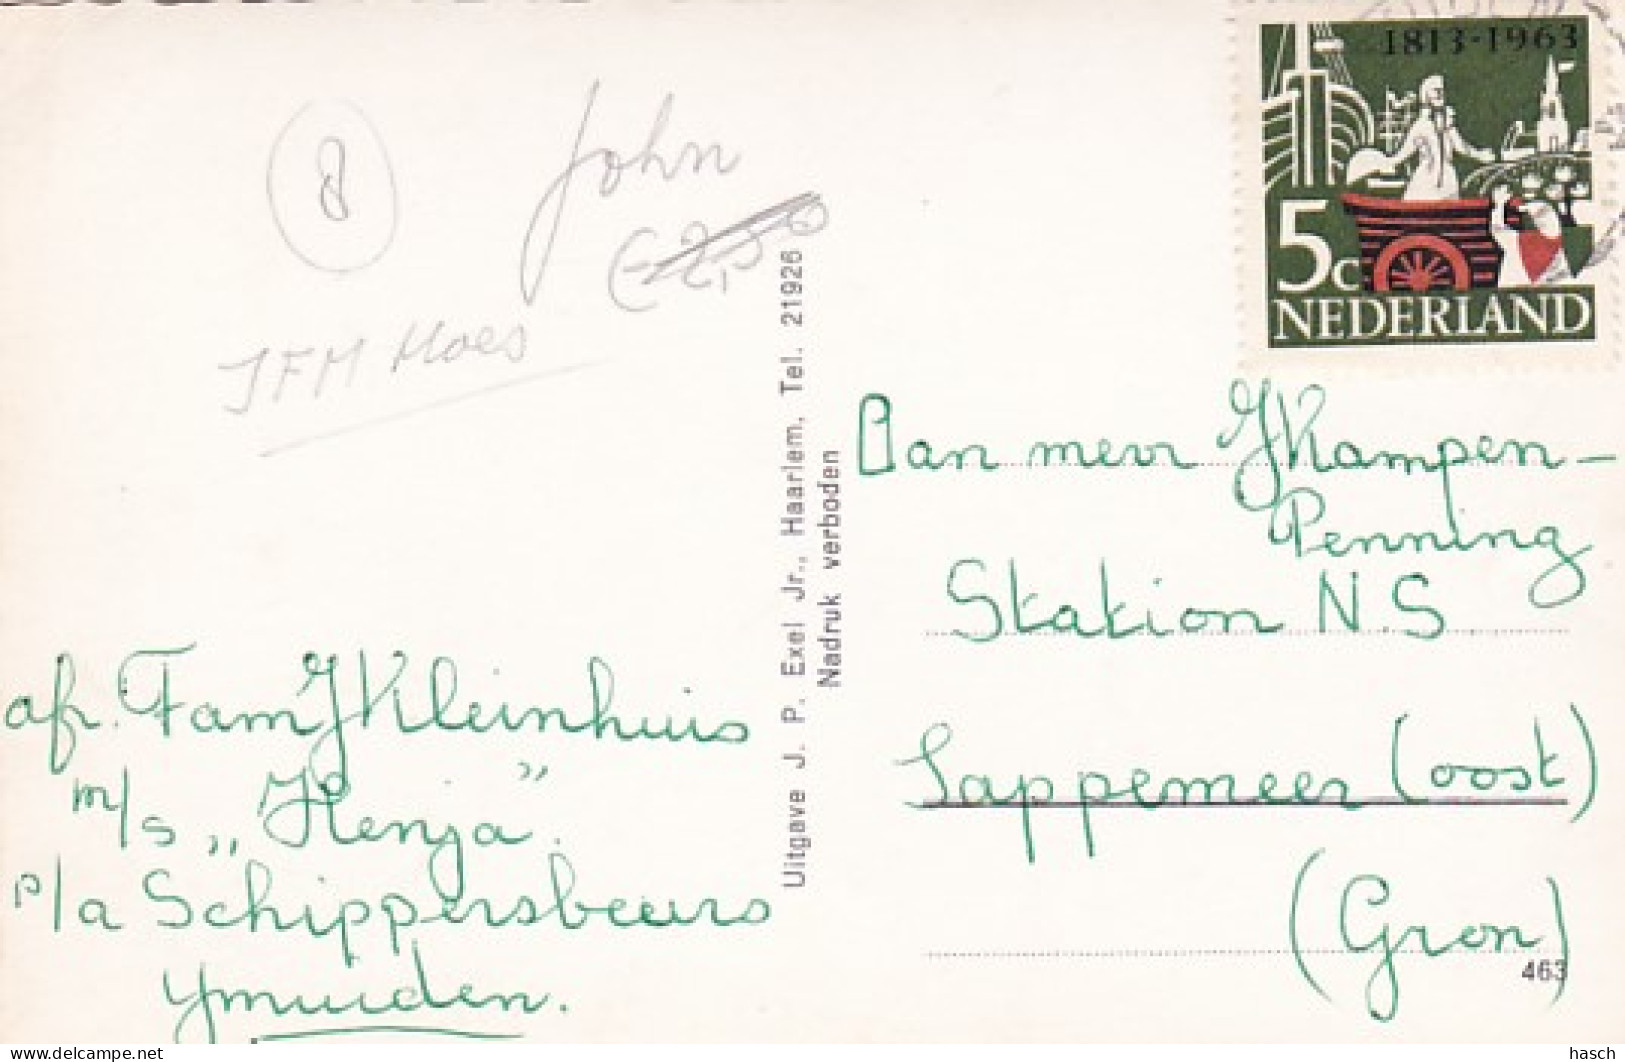 8
John
€ 2,50
JFM Moes
1813-1963
5c
NEDERLAND
Uitgave J. P. Exel Jr., Haarlem, Tel. 21926
Nadruk verboden
Aan mevr JKampen-
Penning
Station N.S
Sappemeer (oost)
(Gron)
463
afz. Fam JKleinhuis
m/s „Henja”.
p/a Schippersbeurs
Ymuiden.
delcampe.net
hasch